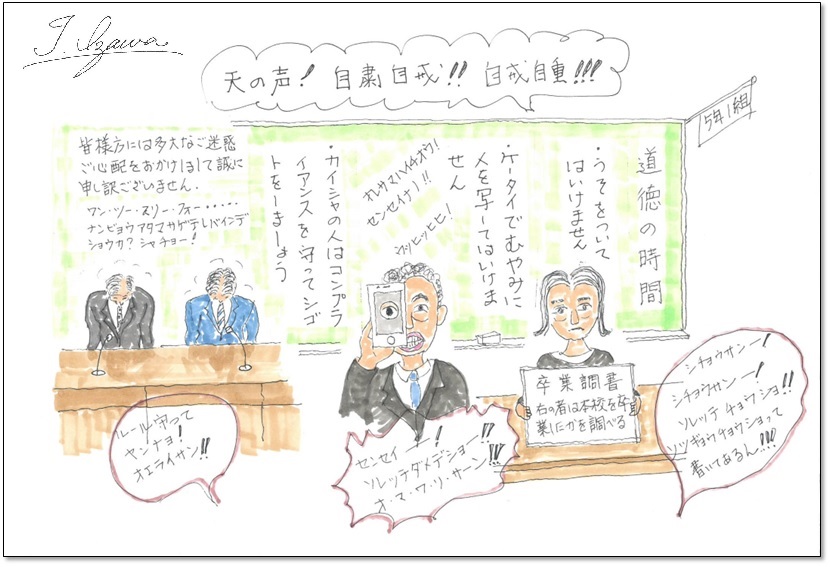 T. Izawa
天の声! 自粛自戒!! 自戒自重!!!
5年1組
道徳の時間
・うそをついて
はいけません
・ケータイでむやみに
人を写してはいけま
せん
・カイシャの人はコンプラ
イアンスを守ってシゴ
トをしましょう
オレサマハイチオウ!
センセイナノ!!
ウッヒッヒヒ!
皆様方には多大なご迷惑
ご心配をおかけしまして誠に
申し訳ございません.
ワン・ツー・スリー・フォー・・・・・
ナンビョウアタマサゲテレバインデ
ショウカ? シャチョー!
卒業調書
右の者は本校を卒
業したかを調べる
ルール守って
ヤンナヨ!
オエライサン!!
センセイーー!
ソレッテダメデショー!?
オ・マ・ワ・リ・サーン!!!
シチョウサンー!
シチョウサンー!
ソレッテ チョウショ!!
ソツギョウチョウショって
書いてあるん!!!